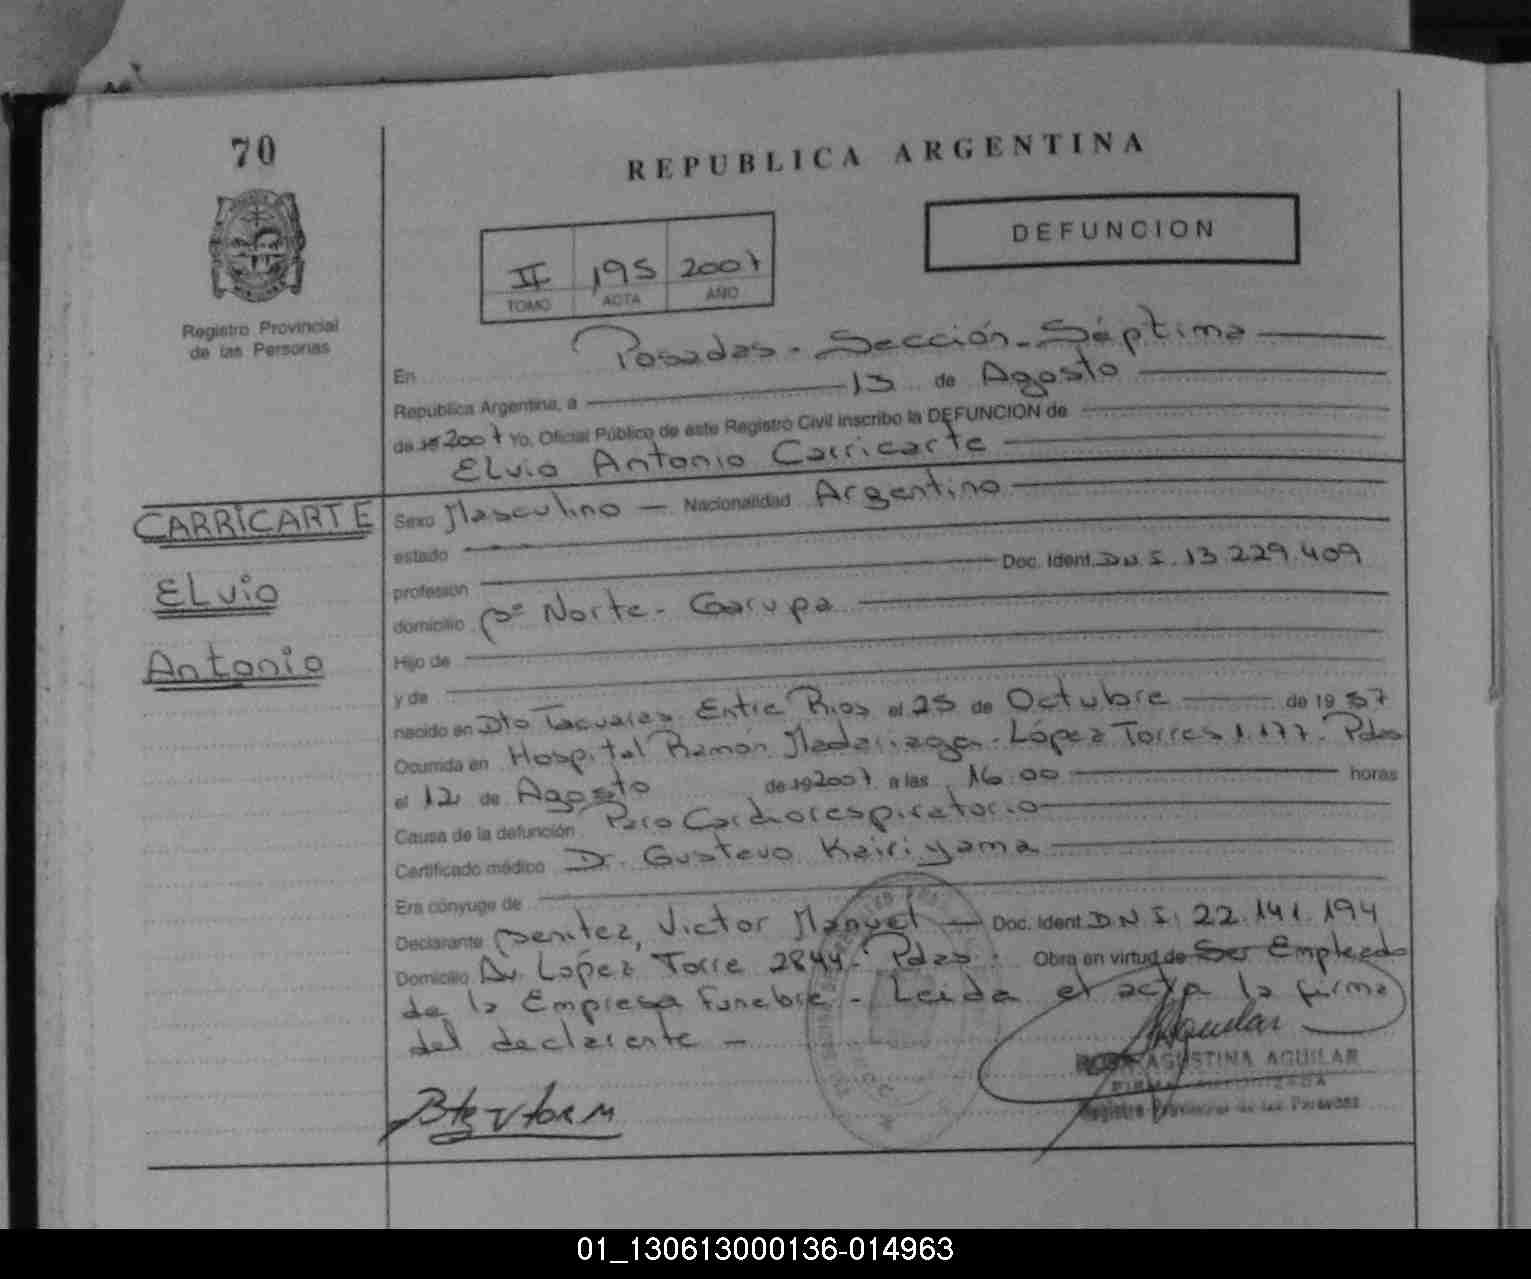 70
REPUBLICA ARGENTINA
DEFUNCION
II 195 2007
TOMO ACTA AÑO
Registro Provincial
de las Personas
En Posadas - Sección - Séptima
República Argentina, a 13 de Agosto
de 19 2007 Yo, Oficial Público de este Registro Civil inscribo la DEFUNCION de
Elvio Antonio Carricarte
CARRICARTE
Elvio
Antonio
Sexo Masculino - Nacionalidad Argentino
estado
profesión Doc. Ident. D.N.I. 13.229.409
domicilio Bº Norte - Garupa
Hijo de
y de
nacido en Dto Tacuaras Entre Rios el 25 de Octubre de 19 57
Ocurrida en Hospital Ramón Madariaga - López Torres 1.177 - Pdas
el 12 de Agosto de 19 2007 a las 16:00 horas
Causa de la defunción Paro Cardiorespiratorio
Certificado médico Dr. Gustavo Kairiyama
Era cónyuge de
Declarante Benitez, Victor Manuel - Doc. Ident. D.N.I. 22.141.194
Domicilio Av. López Torre 2844 - Pdas. Obra en virtud de Ser Empleado
de la Empresa Funebre - Leida el acta la firma
del declarante -
Aguilar
ROSA AGUSTINA AGUILAR
FIRMA AUTORIZADA
Registro Provincial de las Personas
01_130613000136-014963